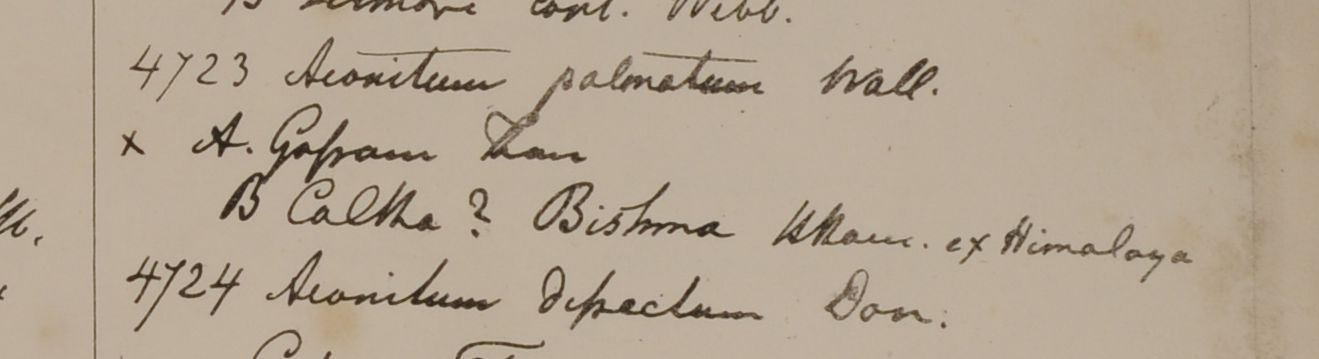 B Sirmore cont. Webb.
4723 Aconitum palmatum Wall.
x A. Goſsam Than
B Caltha ? Bishma Ham. ex Himalaya
4724 Aconitum diſsectum Don.